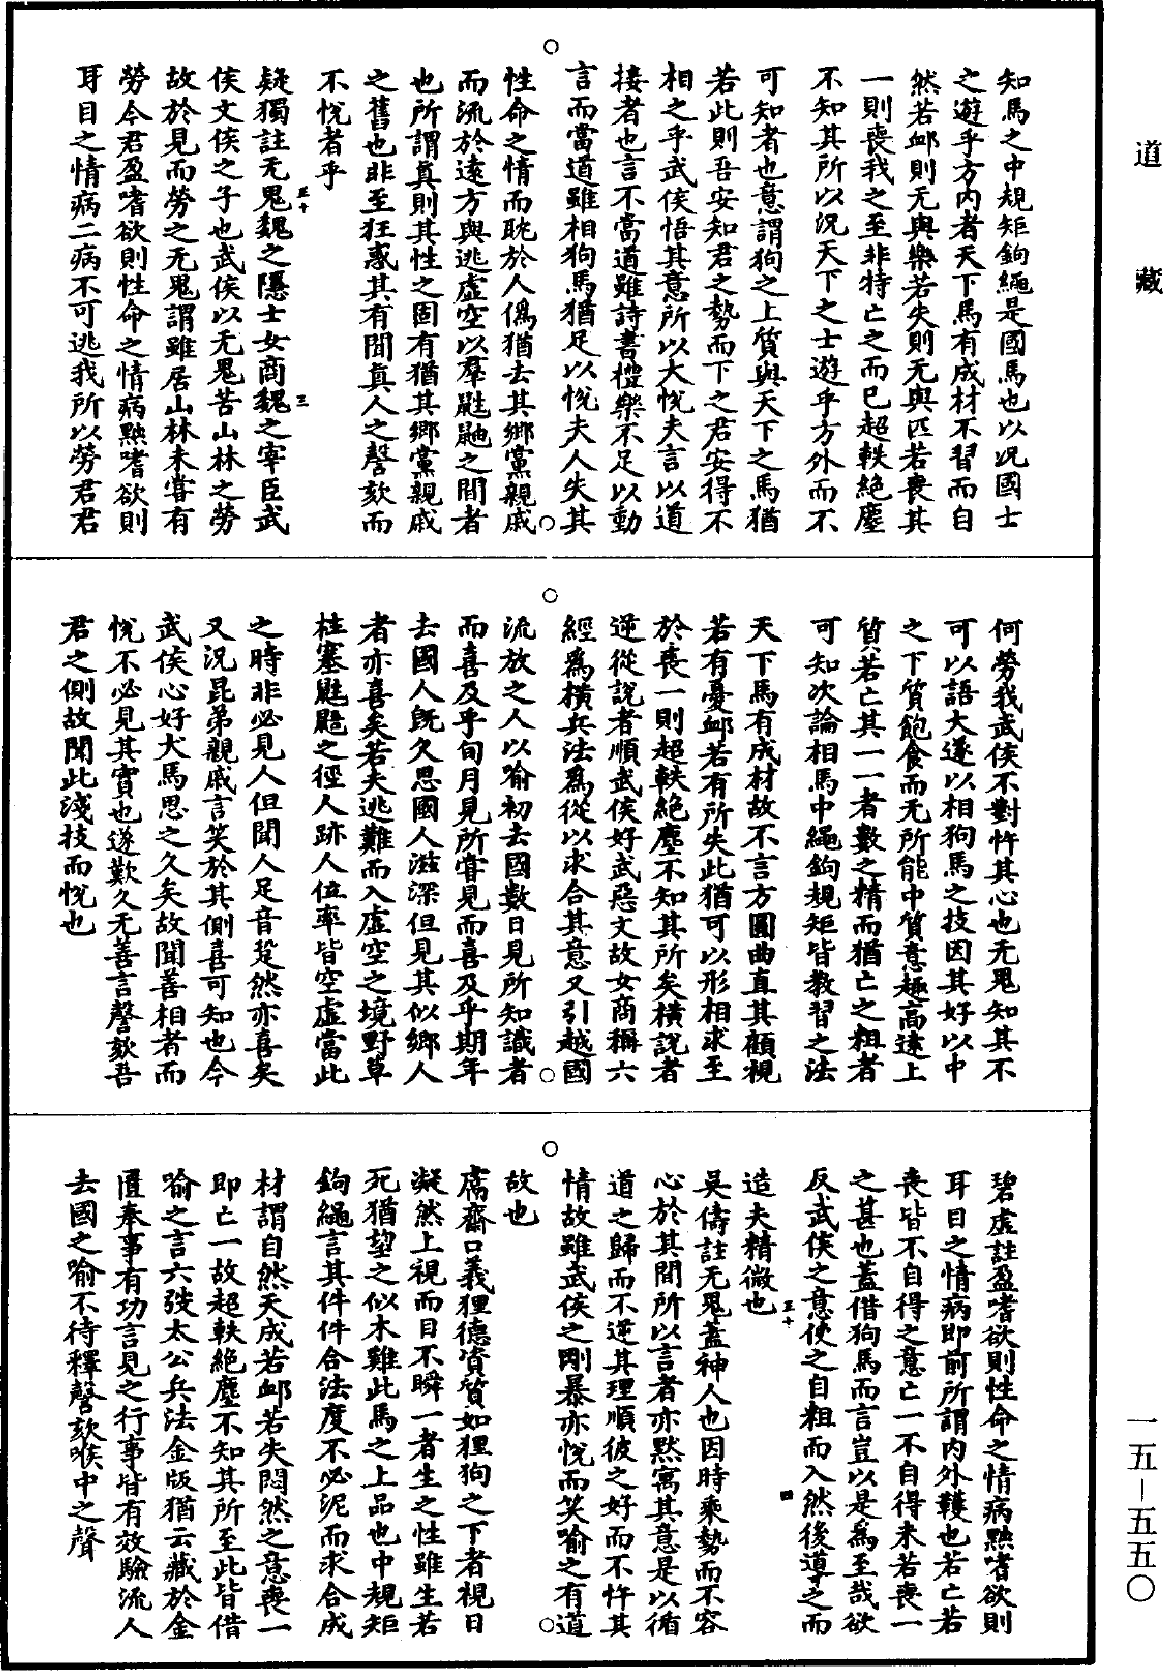 道藏
知馬之中規矩鉤繩是國馬也以況國士
之遊乎方內者天下馬有成材不習而自
然若䘏則无與樂若失則无與匹若喪其
一則喪我之至非特亡之而已超軼絕塵
不知其所以況天下之士遊乎方外而不
可知者也意謂狗之上質與天下之馬猶
若此則吾安知君之勢而下之君安得不
相之乎武侯悟其意所以大悅夫言以道
接者也言不當道雖詩書禮樂不足以動
言而當道雖相狗馬猶足以悅夫人失其
性命之情而耽於人僞猶去其鄉黨親戚
而流於遠方與逃虛空以羣鼪鼬之間者
也所謂真則其性之固有猶其鄉黨親戚
之舊也非至狂惑其有聞真人之謦欬而
不悅者乎
疑獨註无鬼魏之隱士女商魏之宰臣武
侯文侯之子也武侯以无鬼苦山林之勞
故於見而勞之无鬼謂雖居山林未嘗有
勞今君盈嗜欲則性命之情病黜嗜欲則
耳目之情病二病不可逃我所以勞君君
何勞我武侯不對忤其心也无鬼知其不
可以語大遂以相狗馬之技因其好以中
之下質飽食而无所能中質意趣高遠上
質若亡其一一者數之精而猶亡之粗者
可知次論相馬中繩鉤規矩皆教習之法
天下馬有成材故不言方圓曲直其顧視
若有憂䘏若有所失此猶可以形相求至
於喪一則超軼絕塵不知其所矣橫說者
逆從說者順武侯好武惡文故女商稱六
經爲橫兵法爲從以求合其意又引越國
流放之人以喻初去國數日見所知識者
而喜及乎旬月見所嘗見而喜及乎期年
去國人既久思國人滋深但見其似鄉人
者亦喜矣若夫逃難而入虛空之境野草
柱塞鼪鼯之徑人跡人位率皆空虛當此
之時非必見人但聞人足音跫然亦喜矣
又況昆弟親戚言笑於其側喜可知也今
武侯心好犬馬思之久矣故聞善相者而
悅不必見其實也遂歎久无善言謦欬吾
君之側故聞此淺技而悅也
碧虛註盈嗜欲則性命之情病黜嗜欲則
耳目之情病即前所謂內外韄也若亡若
喪皆不自得之意亡一不自得未若喪一
之甚也蓋借狗馬而言豈以是爲至哉欲
反武侯之意使之自粗而入然後導之而
造夫精微也
吳儔註无鬼蓋神人也因時乘勢而不容
心於其間所以言者亦默寓其意是以循
道之歸而不逆其理順彼之好而不忤其
情故雖武侯之剛暴亦悅而笑喻之有道
故也
鬳齋口義狸德資質如狸狗之下者視日
凝然上視而目不瞬一者生之性雖生若
死猶望之似木雞此馬之上品也中規矩
鉤繩言其件件合法度不必泥而求合成
材謂自然天成若䘏若失悶然之意喪一
即亡一故超軼絕塵不知其所至此皆借
喻之言六弢太公兵法金版猶云藏於金
匱奉事有功言見之行事皆有效驗流人
去國之喻不待釋謦欬喉中之聲
一五—五五〇